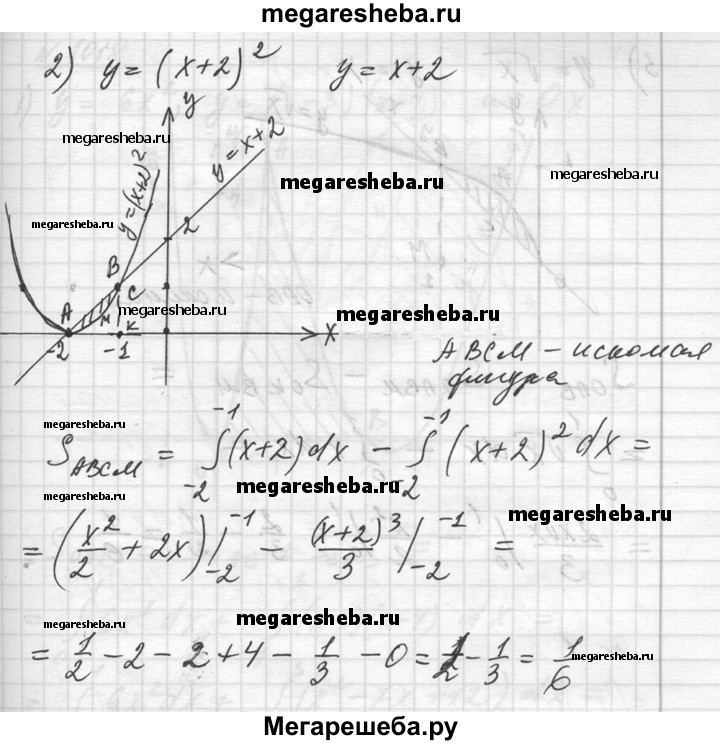 megaresheba.ru
2) y = (x+2)² y = x+2
y
megaresheba.ru
y = x+2
megaresheba.ru
megaresheba.ru
y = (x+2)²
megaresheba.ru
2
B
C
A
M
K
megaresheba.ru
megaresheba.ru
-2 -1 x
ABCM – искомая
фигура
megaresheba.ru
S_ABCM = ∫_{-2}^{-1} (x+2) dx - ∫_{-2}^{-1} (x+2)² dx =
megaresheba.ru
megaresheba.ru
megaresheba.ru
= (x²/2 + 2x) |_{-2}^{-1} - (x+2)³/3 |_{-2}^{-1} =
megaresheba.ru
= 1/2 - 2 - 2 + 4 - 1/3 - 0 = 1/2 - 1/3 = 1/6
megaresheba.ru
megaresheba.ru
Мегарешеба.ру